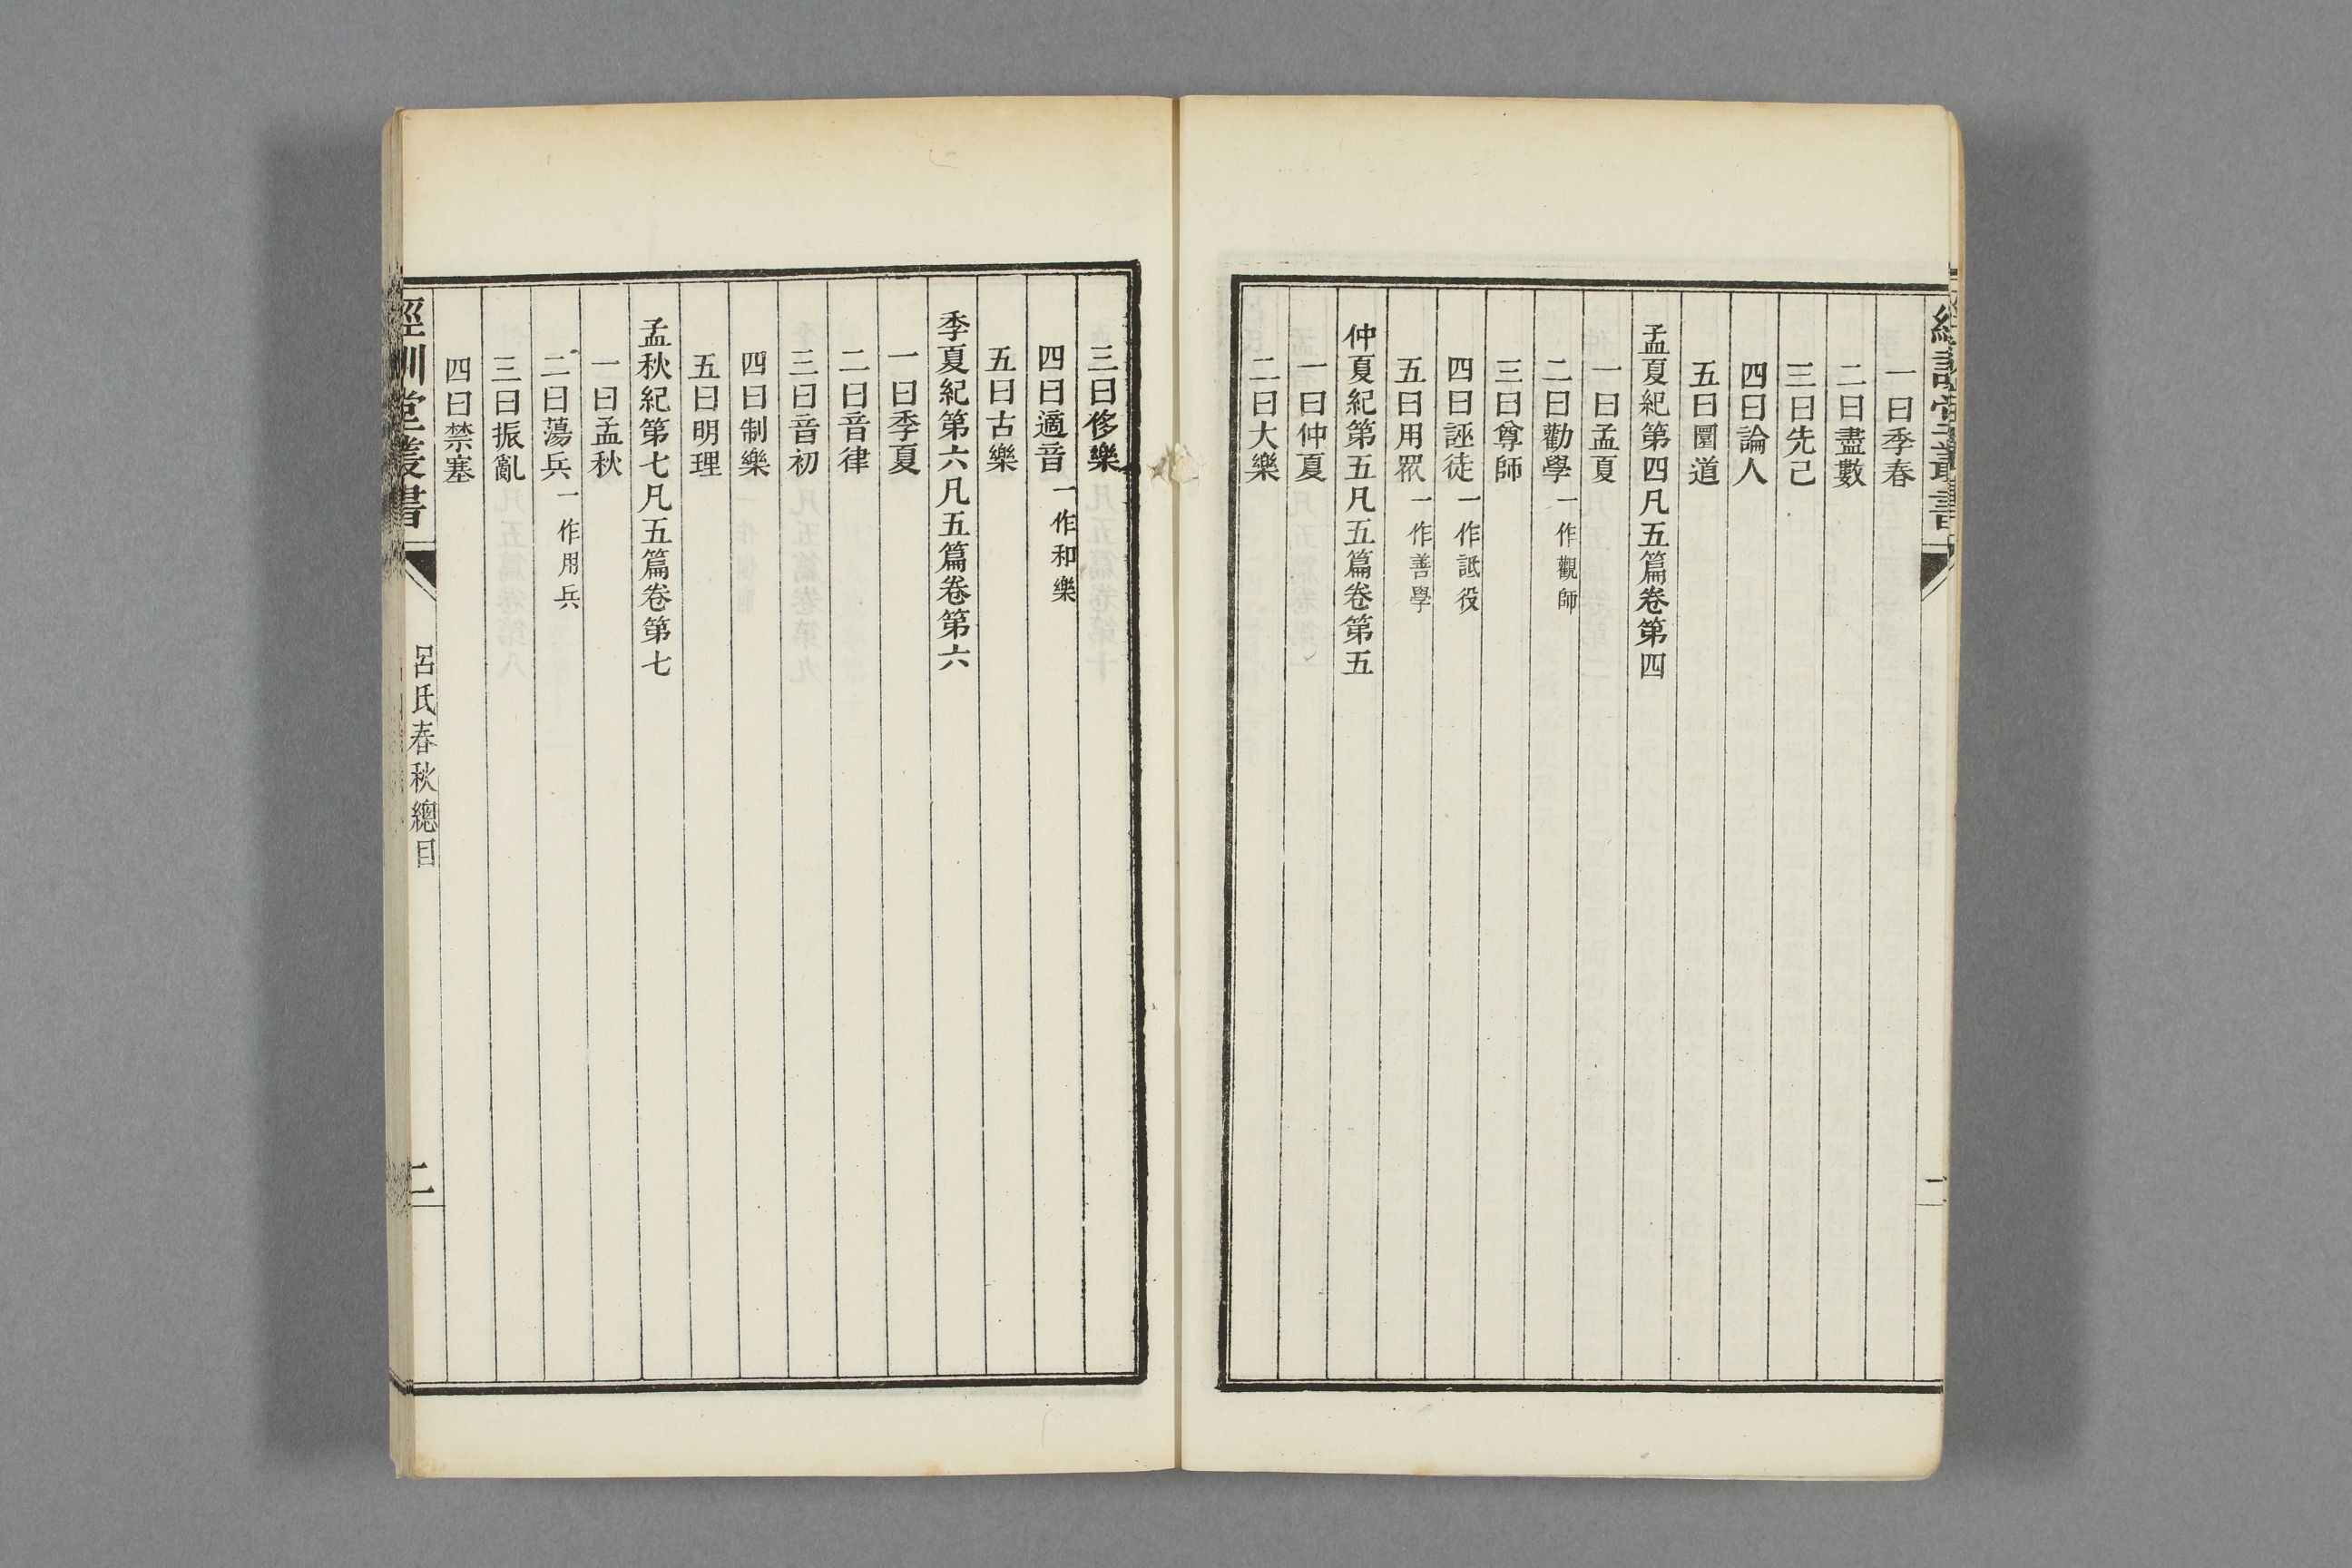 經訓堂叢書
一曰季春
二曰盡數
三曰先己
四曰論人
五曰圜道
孟夏紀第四凡五篇卷第四
一曰孟夏
二曰勸學一作觀師
三曰尊師
四曰誣徒一作詆役
五曰用眾一作善學
仲夏紀第五凡五篇卷第五
一曰仲夏
二曰大樂
三曰侈樂
四曰適音一作和樂
五曰古樂
季夏紀第六凡五篇卷第六
一曰季夏
二曰音律
三曰音初
四曰制樂
五曰明理
孟秋紀第七凡五篇卷第七
一曰孟秋
二曰蕩兵一作用兵
三曰振亂
四曰禁塞
經訓堂叢書
呂氏春秋總目
二